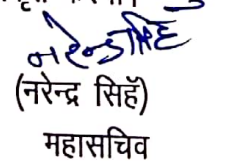 नरेन्द्र सिंह
(नरेन्द्र सिहॅ)
महासचिव